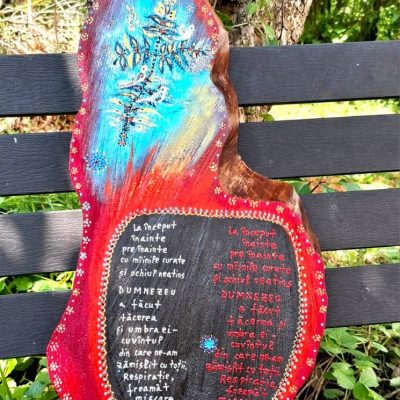 La început
înainte
pre înainte
cu mîinile curate
și ochiul neatins
DUMNEZEU
a făcut
tăcerea
și umbra ei-
cuvîntul
din care ne-am
zămislit cu toții.
Respirație,
freamăt
mișcare
La început
înainte
pre înainte
cu mîinile curate
și ochiul neatins
DUMNEZEU
a făcut
tăcerea și
umbra ei-
cuvîntul
din care ne-am
zămislit cu toții
Respirație,
freamăt